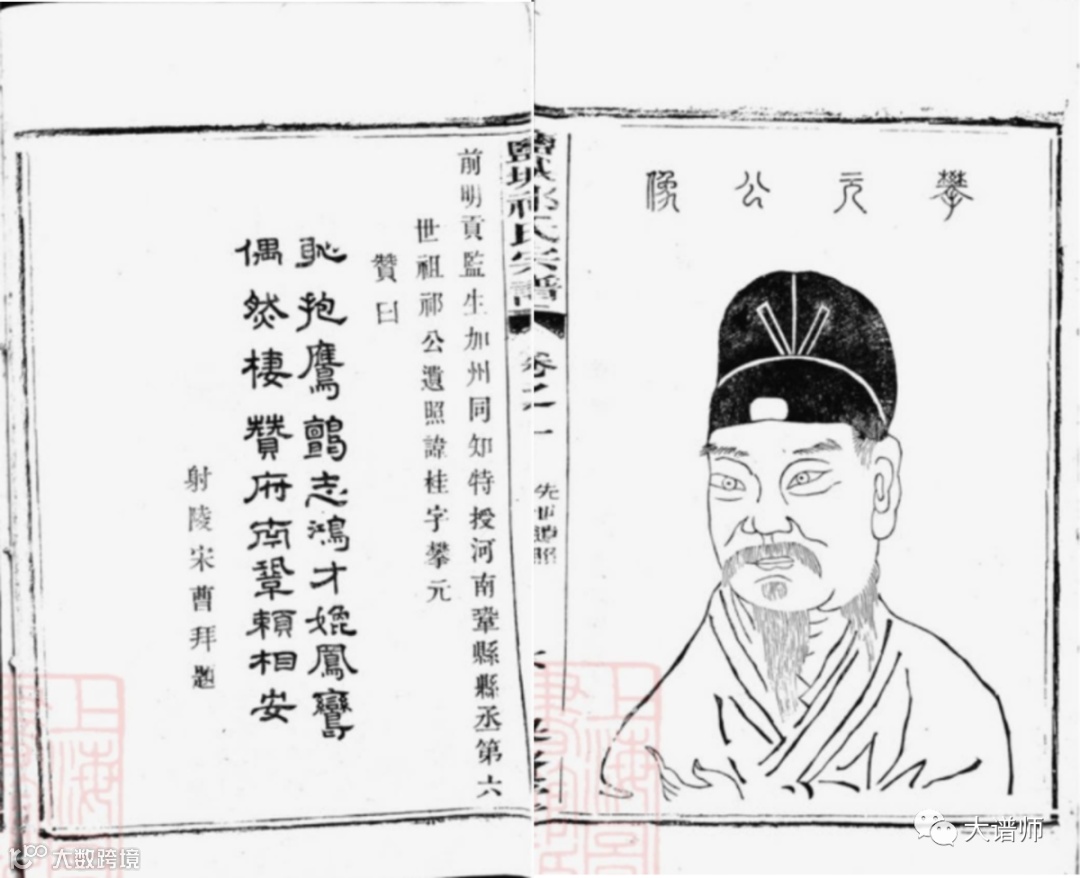 攀元公像
鹽城祁氏宗譜
卷之一
先世遺照
前明貢監生加州同知特授河南鞏縣縣丞第六
世祖祁公遺照諱桂字攀元
贊曰
恥抱鷹鸇志鴻才媲鳳鸞
偶然棲贊府南鞏賴相安
射陵宋曹拜題
上海
大谱师
大数跨境